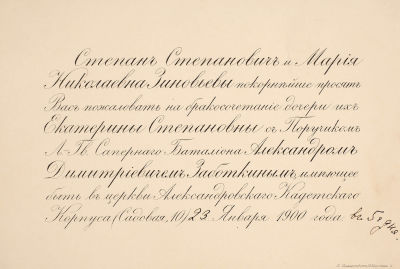 Степанъ Степановичъ и Марія
Николаевна Зиновьевы покорнѣйше просятъ
Васъ пожаловать на бракосочетаніе дочери ихъ
Екатерины Степановны съ Поручикомъ
Л-Гв. Сапернаго Баталіона Александромъ
Димитріевичемъ Заботкинымъ, имѣющее
быть въ церкви Александровскаго Кадетскаго
Корпуса (Садовая, 10) 23 Января 1900 года въ 5 ч. дня.